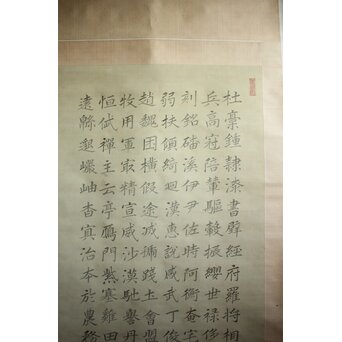 杜稾鍾隸漆書壁經府羅將相
兵高冠陪輦驅轂振纓世祿侈
刻銘磻溪伊尹佐時阿衡奄宅
弱扶傾綺迴漢惠說感武丁俊
趙魏困橫假途滅虢踐土會盟
牧用軍最精宣威沙漠馳譽丹
恒岱禪主云亭鴈門紫塞雞田
遠緜邈巖岫杳冥治本於農務